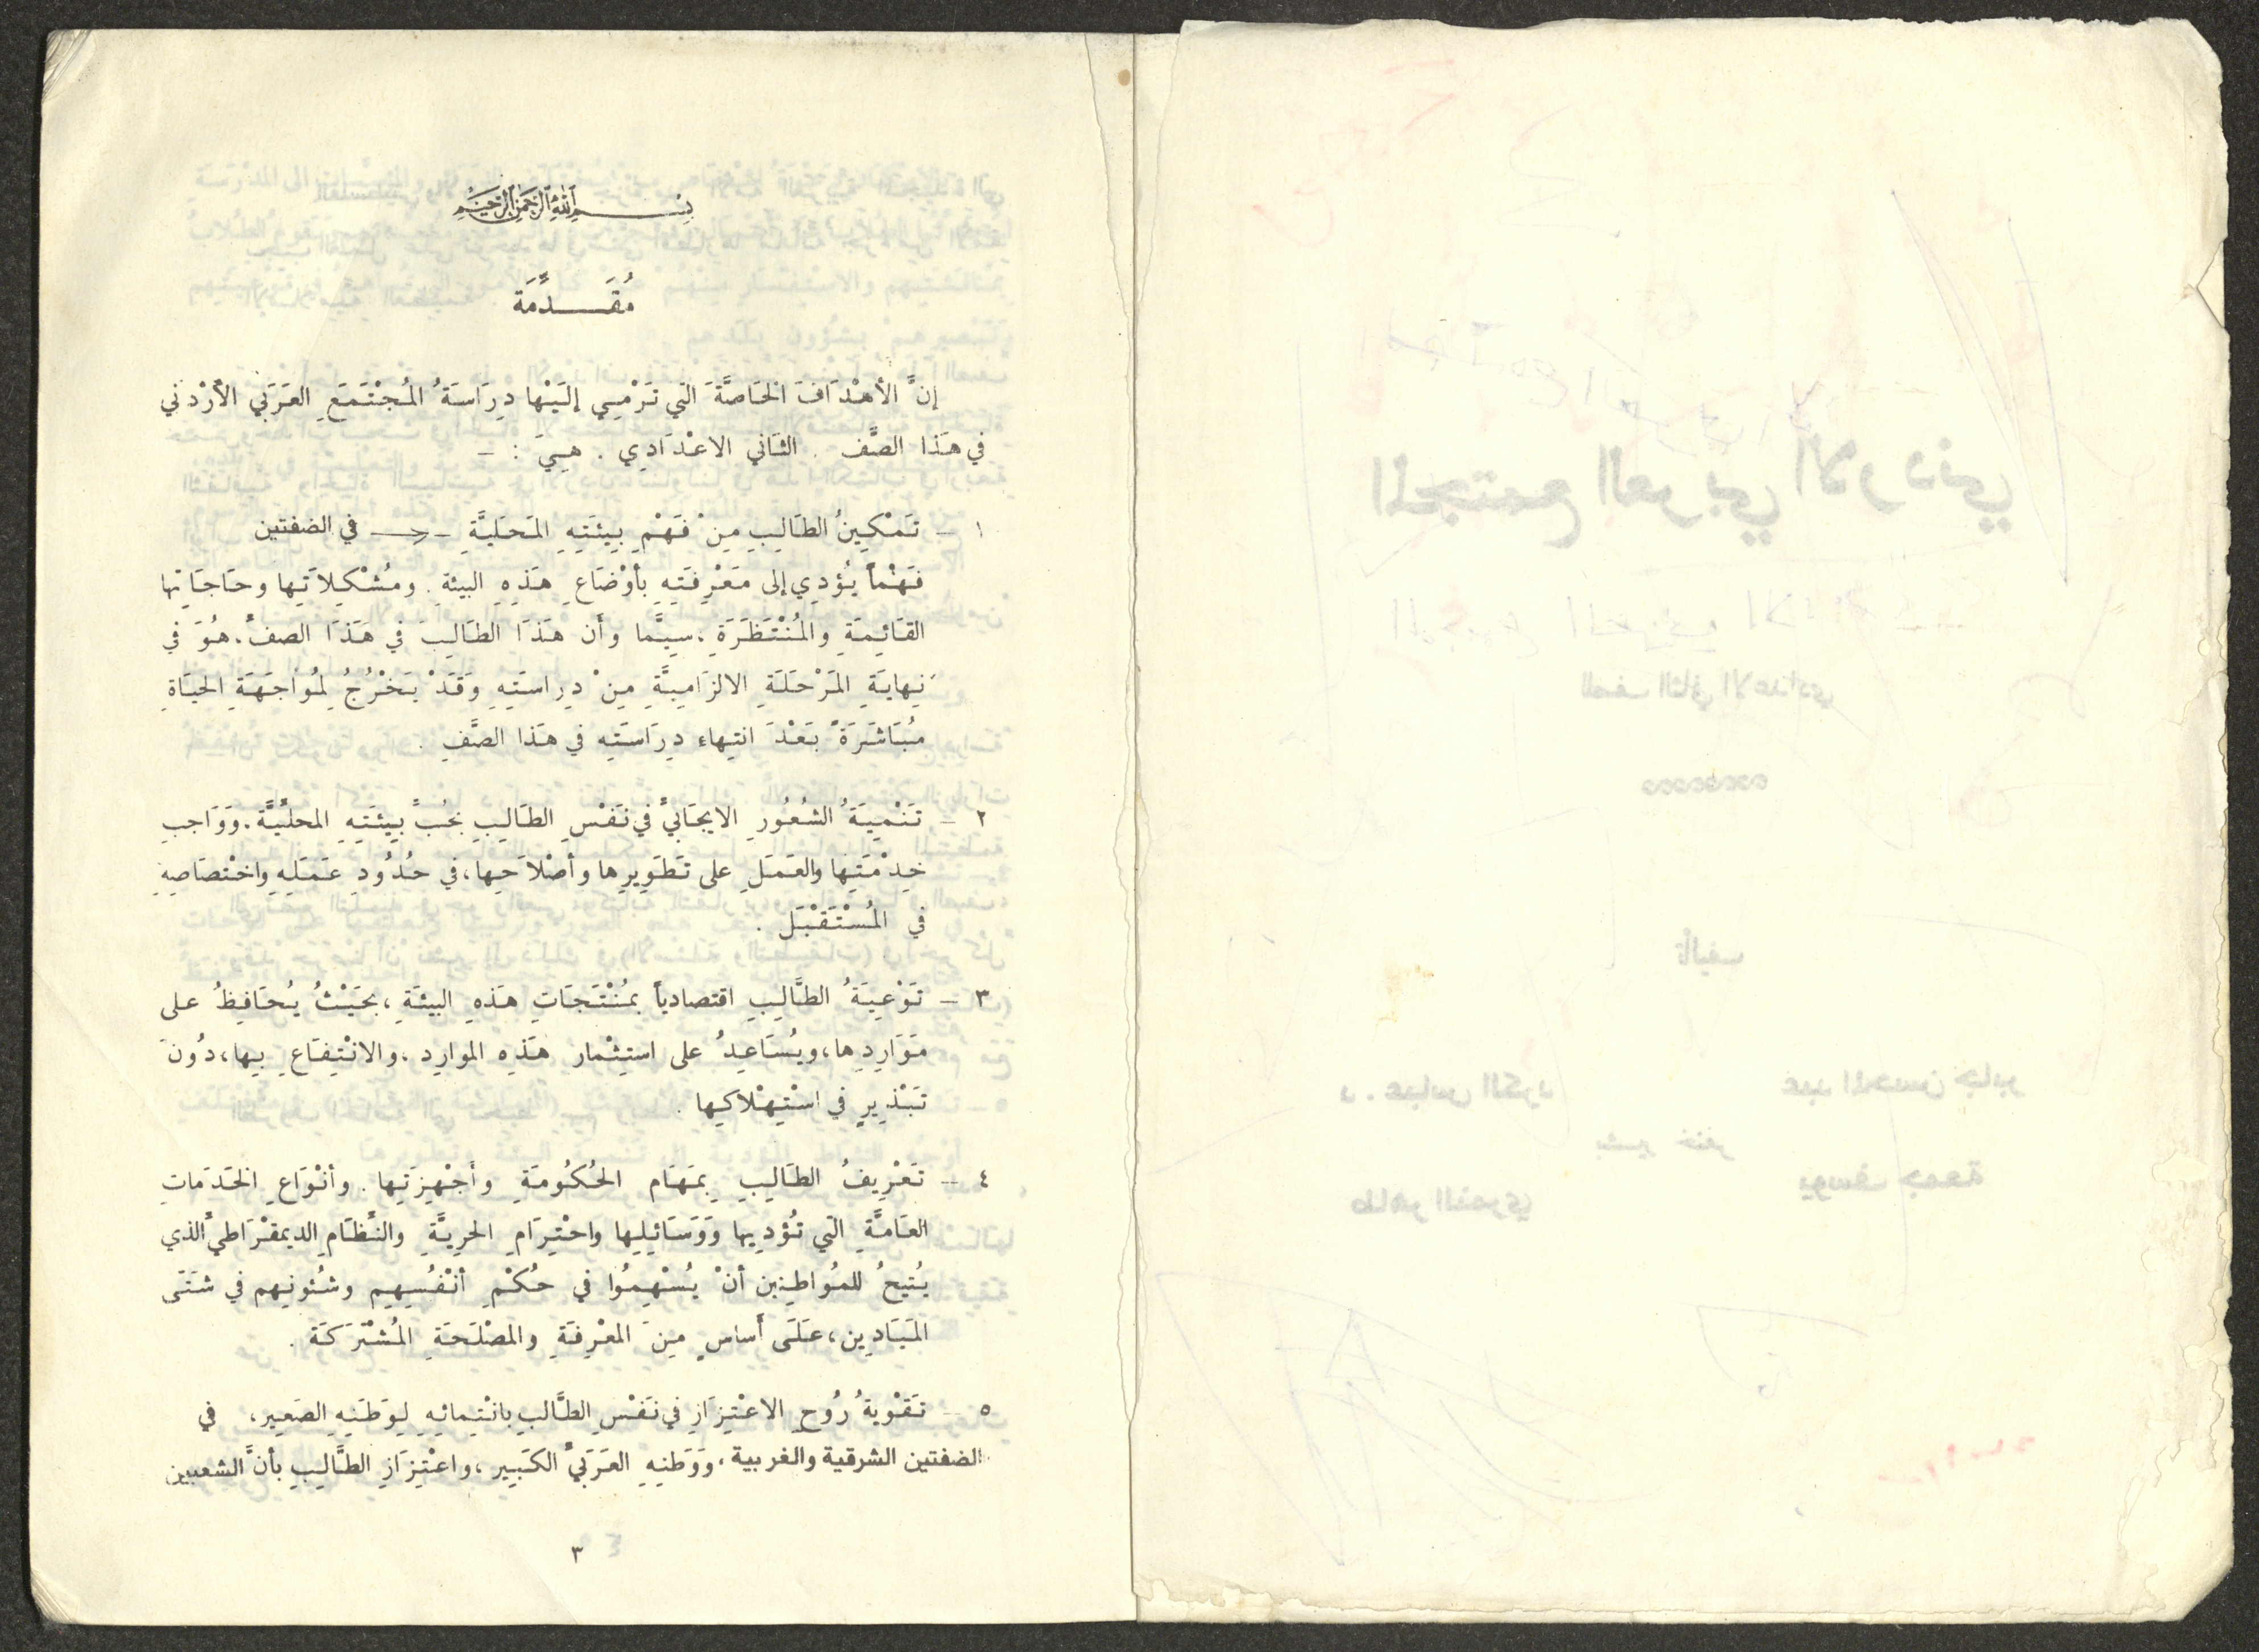 بِسْمِ اللهِ الرَّحْمٰنِ الرَّحِيْمِ
مُقَـــدِّمَة
إنَّ الأهْدَافَ الخَاصَّةَ التي تَرْمِي إلَيْها دِرَاسَةُ المُجْتَمَعِ العَرَبي الأرْدني
في هَذا الصَّف . الثَاني الاعْدَادِي . هِيَ : -
١ - تَمْكِينُ الطَالِبِ مِنْ فَهْمِ بِيئَتِهِ المَحَليَّةِ - في الضفتين
فَهْماً يُؤدِي إلى مَعْرِفَتِهِ بأوْضَاعِ هَذِهِ البيئةِ . ومُشْكِلاَتِها وحَاجَاتِها
القَائِمَةِ والمُنْتَظَرَةِ ، سِيَّما وأن هَذَا الطَالِبَ في هَذَا الصفِّ . هُوَ في
نِهايَةِ المَرْحَلَةِ الالزَامِيَّةِ مِنْ دِراسَتِهِ وَقَدْ يَخْرُجُ لمُوَاجَهَةِ الحيَاةِ
مُبَاشَرَةً بَعْدَ انتِهاء دِرَاسَتِه في هَذا الصَّفِ .
٢ - تَنْمِيَةُ الشُعُورِ الايجَابيِّ في نَفْسِ الطَالِبِ بحُبِّ بِيئَتِهِ المحلِّيَّة . وَوَاجبِ
خِدْمَتِها والعَمَلِ على تَطوِيرِها وأصْلاَحِها ، في حُدُودِ عَمَلِهِ واخْتصَاصِهِ
في المُسْتَقْبَل .
٣ - تَوْعِيَةُ الطَّالِبِ اقتصادياً بمُنْتَجَاتِ هَذِهِ البيئَةِ ، بحَيْثُ يُحَافِظُ على
مَوَارِدِها ، ويُسَاعِدُ على استِثْمار هَذِه الموارِد ، والانْتِفَاعِ بِها ، دُونَ
تَبْذِيرٍ في اسْتِهْلاكِها .
٤ - تَعْرِيفُ الطَالِبِ بِمَهَام الحُكُومَةِ وأجْهِزَتِها . وأنْوَاعِ الخَدَمَاتِ
العَامَّةِ التي تُؤدِيها وَوَسَائِلِها واحْتِرَامِ الحرِيَّةِ والنِّظَامِ الديمقْرَاطيِّ الذي
يُتيحُ للمُواطِنين أنْ يُسْهِمُوا في حُكْمِ أنْفُسِهِم وشُئونِهم في شَتَى
المَيَادِين ، عَلَى أساسٍ مِنَ المعْرِفَةِ والمصْلَحَةِ المُشْتَرَكَة .
٥ - تَقْوِيةُ رُوُحِ الاعْتِزَازِ في نَفْسِ الطَّالبِ بانْتِمائِهِ لِوَطَنِهِ الصَغِير ، في
الضفتين الشرقية والغربية ، وَوَطنِهِ العَرَبيِّ الكَبِير ، واعْتِزَازِ الطَّالِبِ بأنَّ الشعبين
٣
المجتمع العربي الاردني
للصف الثاني الاعدادي
تأليف
عبد المحسن جابر
د . عباس الكرد
بشير خنفر
يوسف جمعة
طاهر النمري